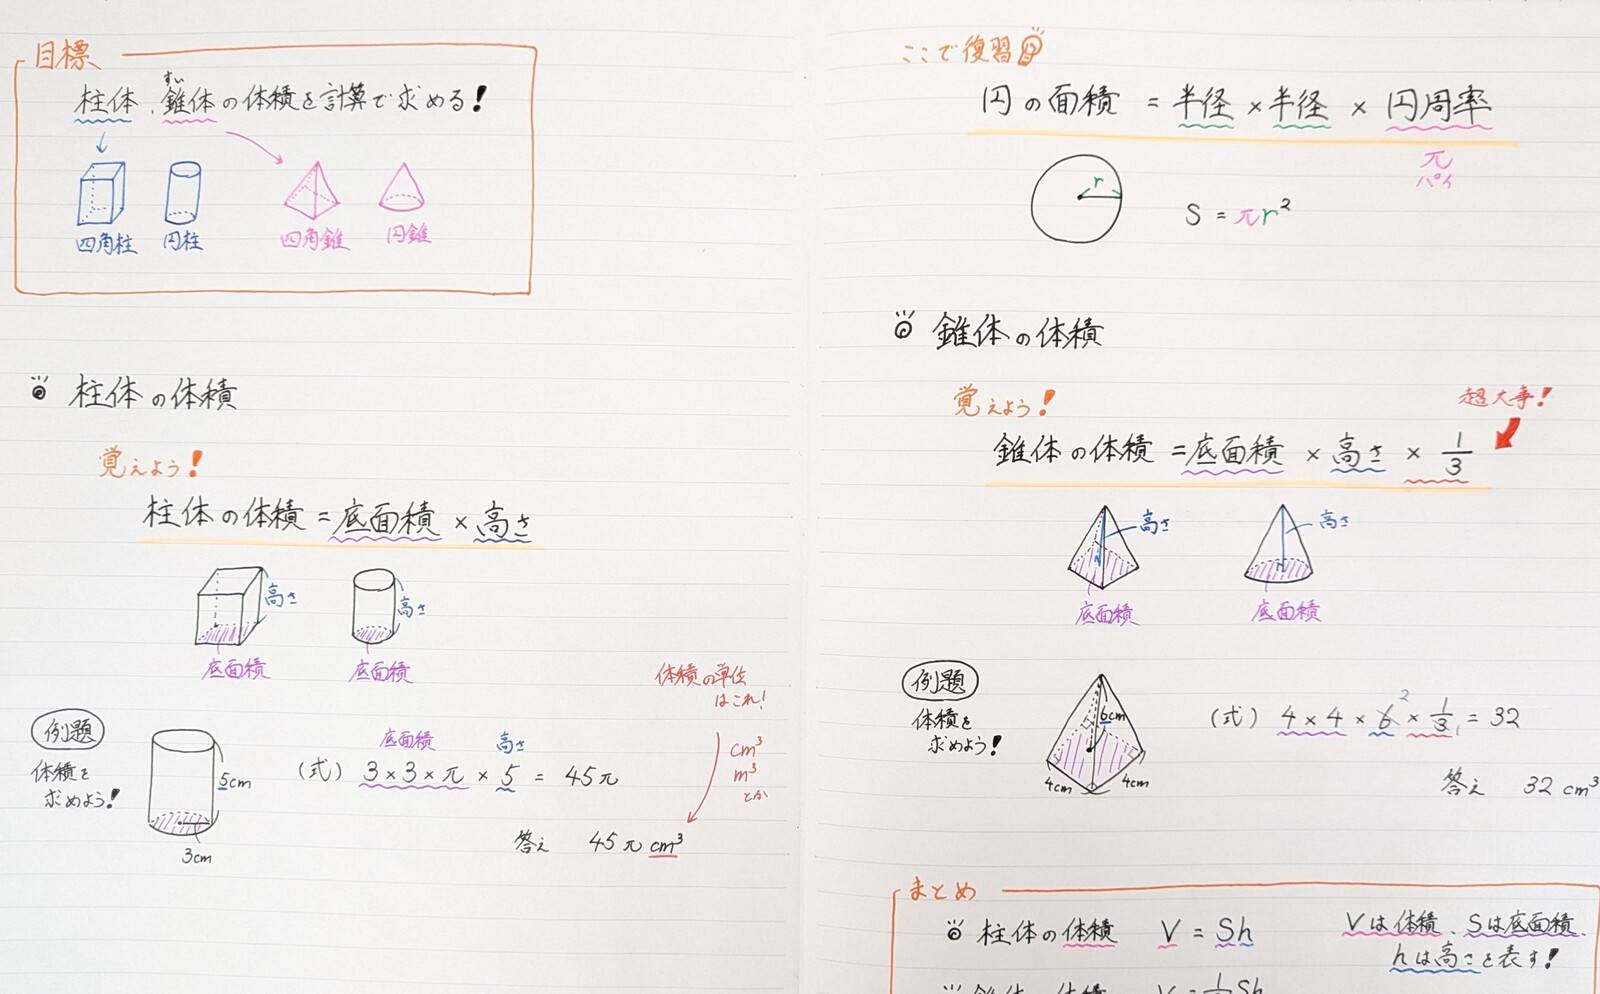 目標
すい
柱体、錐体の体積を計算で求める！
四角柱 円柱 四角錐 円錐
柱体の体積
覚えよう！
柱体の体積 = 底面積 × 高さ
高さ 高さ
底面積 底面積
体積の単位
はこれ！
cm³
m³
とか
例題
体積を
求めよう！
5cm
3cm
底面積 高さ
(式) 3 × 3 × π × 5 = 45π
答え 45π cm³
ここで復習
円の面積 = 半径 × 半径 × 円周率
π
パイ
r
S = πr²
錐体の体積
覚えよう！
超大事！
錐体の体積 = 底面積 × 高さ × 1/3
高さ 高さ
底面積 底面積
例題
体積を
求めよう！
6cm
4cm 4cm
2
(式) 4 × 4 × 6 × 1/3 = 32
1
答え 32 cm³
まとめ
柱体の体積 V = Sh
Vは体積、Sは底面積、
hは高さを表す！
錐体の体積 V = 1/3 Sh